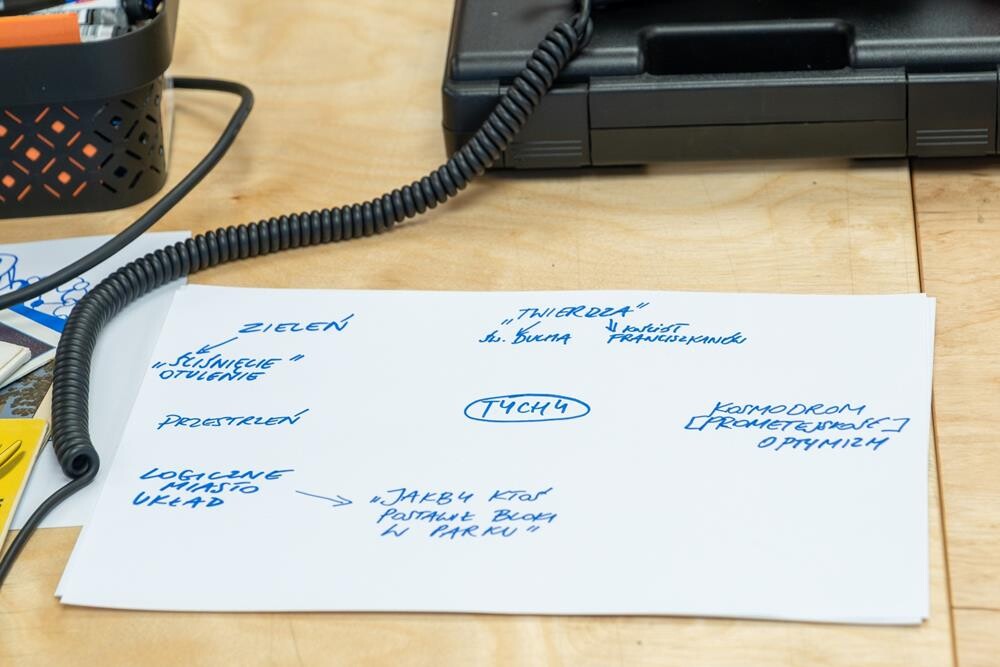 ZIELEŃ
„ŚCIŚNIĘCIE"
OTULENIE
PRZESTRZEŃ
LOGICZNE
MIASTO
UKŁAD
„JAKBY KTOŚ
POSTAWIŁ BLOKI
W PARKU"
„TWIERDZA"
ŚW. DUCHA
KOŚCIÓŁ
FRANCISZKANÓW
TYCHY
KOSMODROM
[PROMETEJSKOŚĆ]
OPTYMIZM